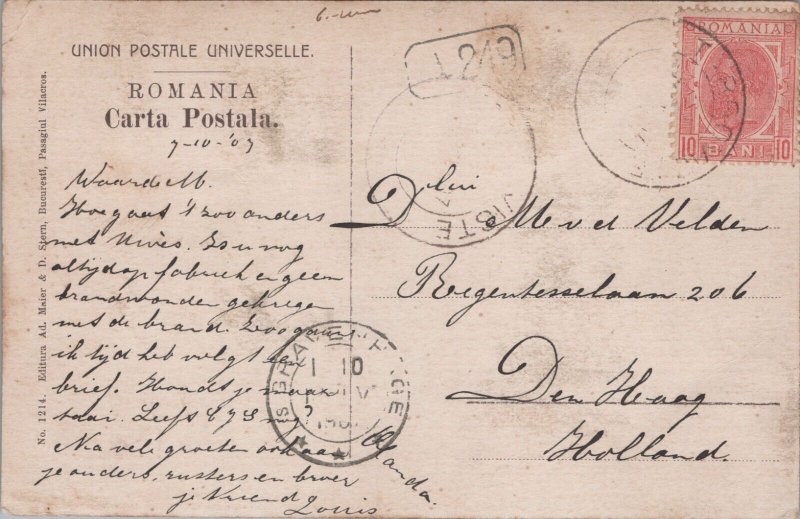 UNION POSTALE UNIVERSELLE.
ROMANIA
Carta Postala.
7-10-'07
Waarde M.
Hoe gaat 't zoo anders
met Nives. Is u nog
altijd op fabriek en geen
brandwonden gekregen
met de brand. Zoo gauw
ik tijd heb volgt een
brief. Houdt je maar
taai.
Na vele groeten ook aan
je ouders, zusters en broer
je vriend Louis
No. 1214. Editura Ad. Maier & D. Stern, Bucuresti, Pasagiul Vilacros.
1 249
JISTE
ROMANIA
10 BANI 10
Dlui
M v d Velden
Regentesselaan 206
Den Haag
Holland.
'S GRAVENHAGE
1 10